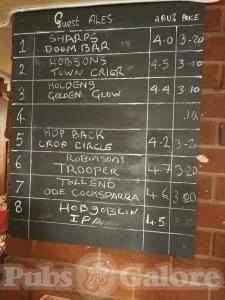 Guest ALES ABV% PRICE
1 SHARPS
DOOM BAR 4.0 3-20
2 HOBSONS
TOWN CRIER 4.5 3-10
3 HOLDENS
GOLDEN GLOW 4.4 3.10
4 .10
5 HOP BACK
CROP CIRCLE 4.2 3-20
6 ROBINSONS
TROOPER 4.7 3.20
7 TOLLEND
ODE COCKSPARRA 4.6 3.00
8 HOBGOBLIN
IPA 4.5
Pubs Galore